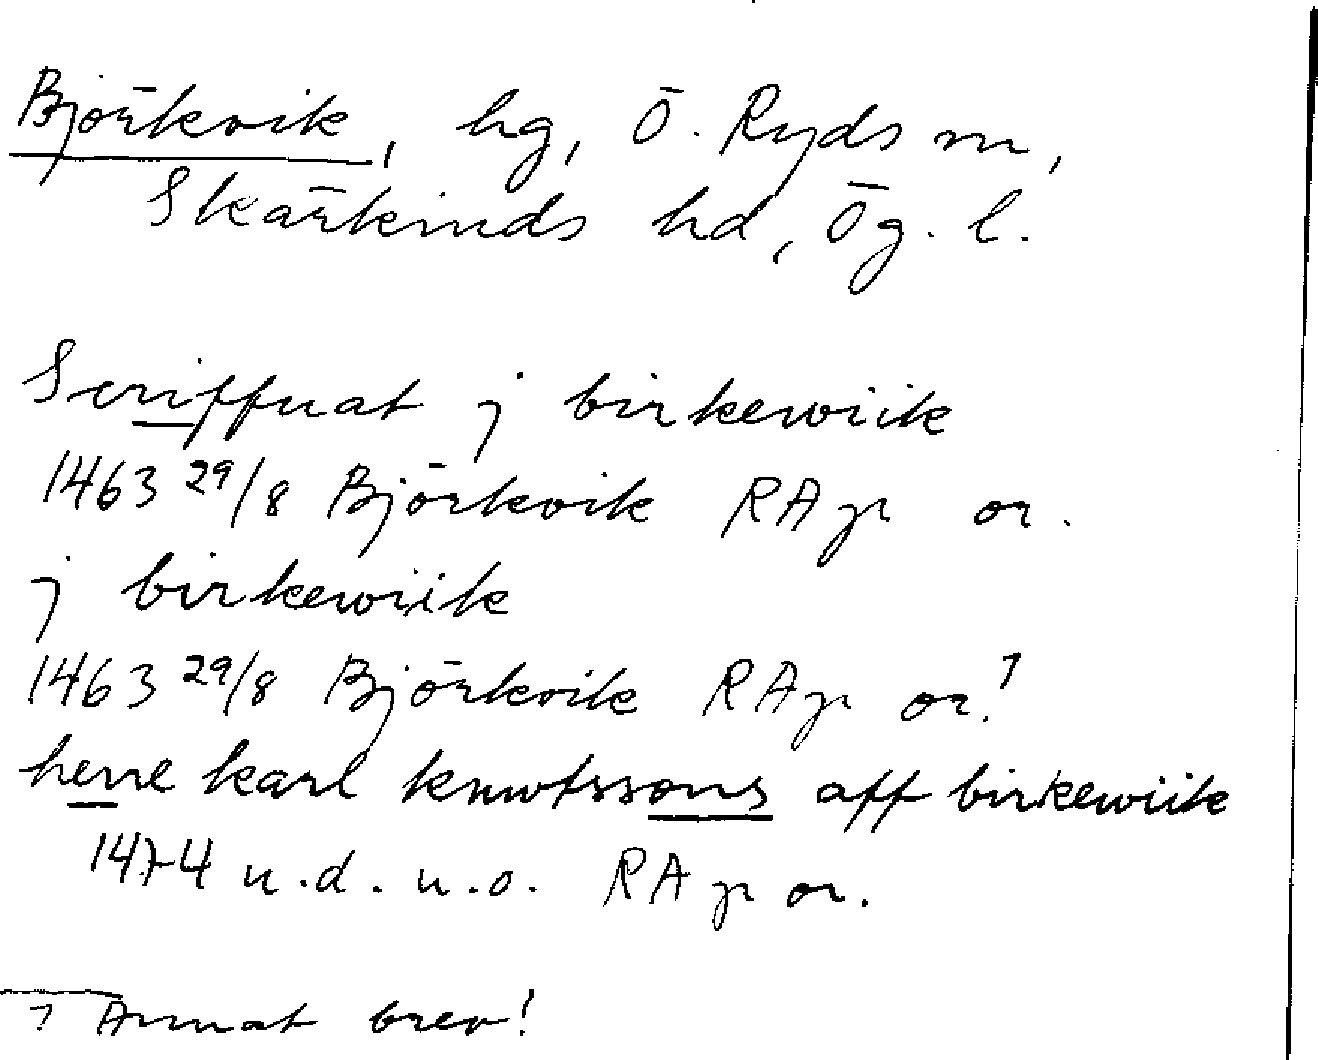 Björkvik, hg, Ö. Ryds sn,
Skärkinds hd, Ög. l.
Scriffuat j birkewiik
1463 29/8 Björkvik RAp or.
j birkewiik
1463 29/8 Björkvik RAp or.1
herre karl knwtssons aff birkewiik
1474 u.d. u.o. RAp or.
1 Annat brev!